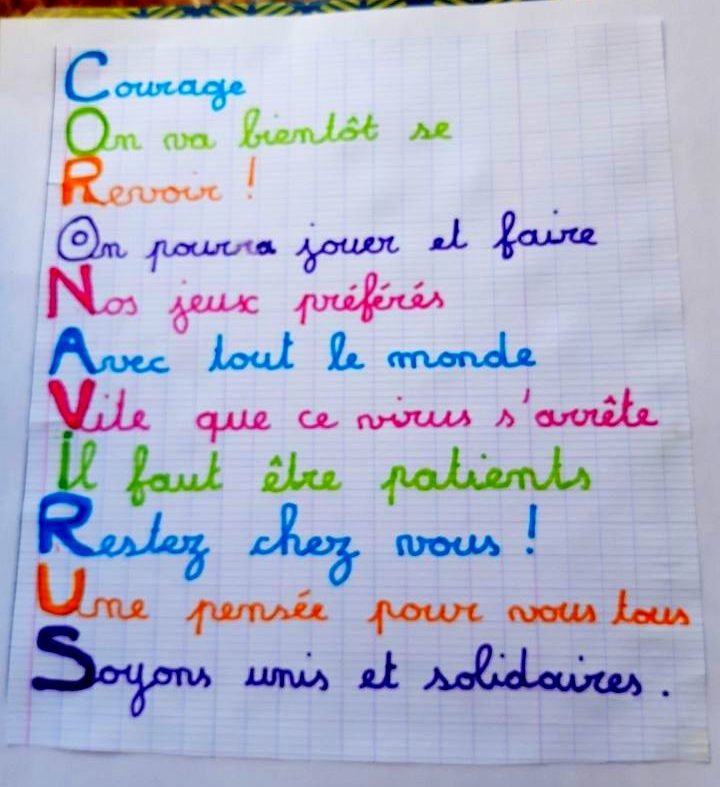 Courage
On va bientôt se
Revoir !
On pourra jouer et faire
Nos jeux préférés
Avec tout le monde
Vite que ce virus s'arrête
Il faut être patients
Restez chez vous !
Une pensée pour vous tous
Soyons unis et solidaires.